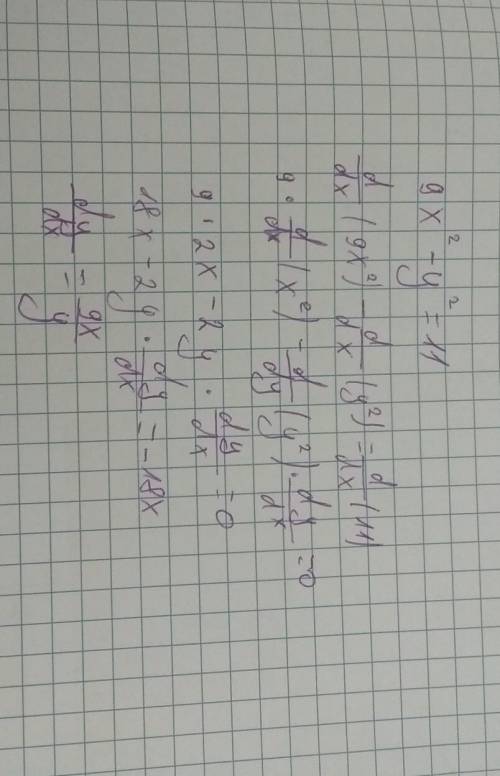 9x² - y² = 11
d/dx (9x²) - d/dx (y²) = d/dx (11)
9 · d/dx (x²) - d/dy (y²) · dy/dx = 0
9 · 2x - 2y · dy/dx = 0
18x - 2y · dy/dx = -18x
dy/dx = 9x/y